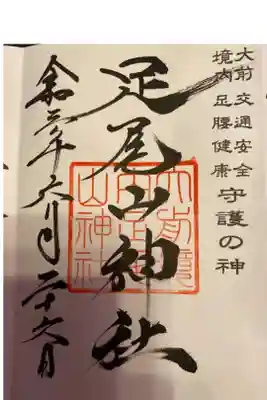 大前 交通安全
境内 足腰健康
守護の神
足尾山神社
大前境
内足尾
山神社
令和 年六月二十六日